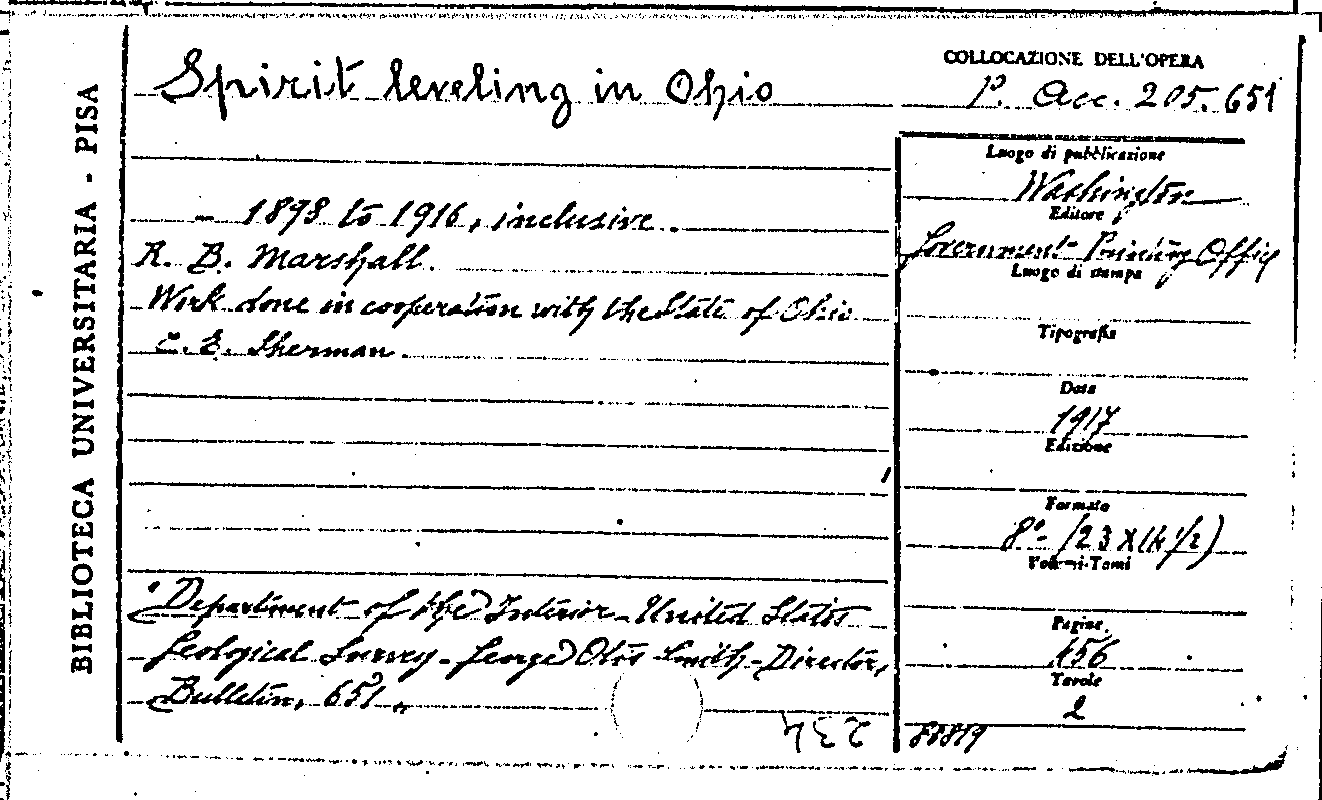 BIBLIOTECA UNIVERSITARIA - PISA
Spirit leveling in Ohio
COLLOCAZIONE DELL'OPERA
P. Acc. 205. 651
- 1898 to 1916, inclusive.
R. B. Marshall.
Work done in cooperation with the State of Ohio
C. E. Sherman.
Department of the Interior - United States
Geological Survey - George Otis Smith - Director,
Bulletin, 651.
Luogo di pubblicazione
Washington
Editore
Government Printing Office
Luogo di stampa
Tipografia
Data
1917
Edizione
Formato
8°- (23 X 14 1/2)
Volumi-Tomi
Pagine
156
Tavole
2
80819
234